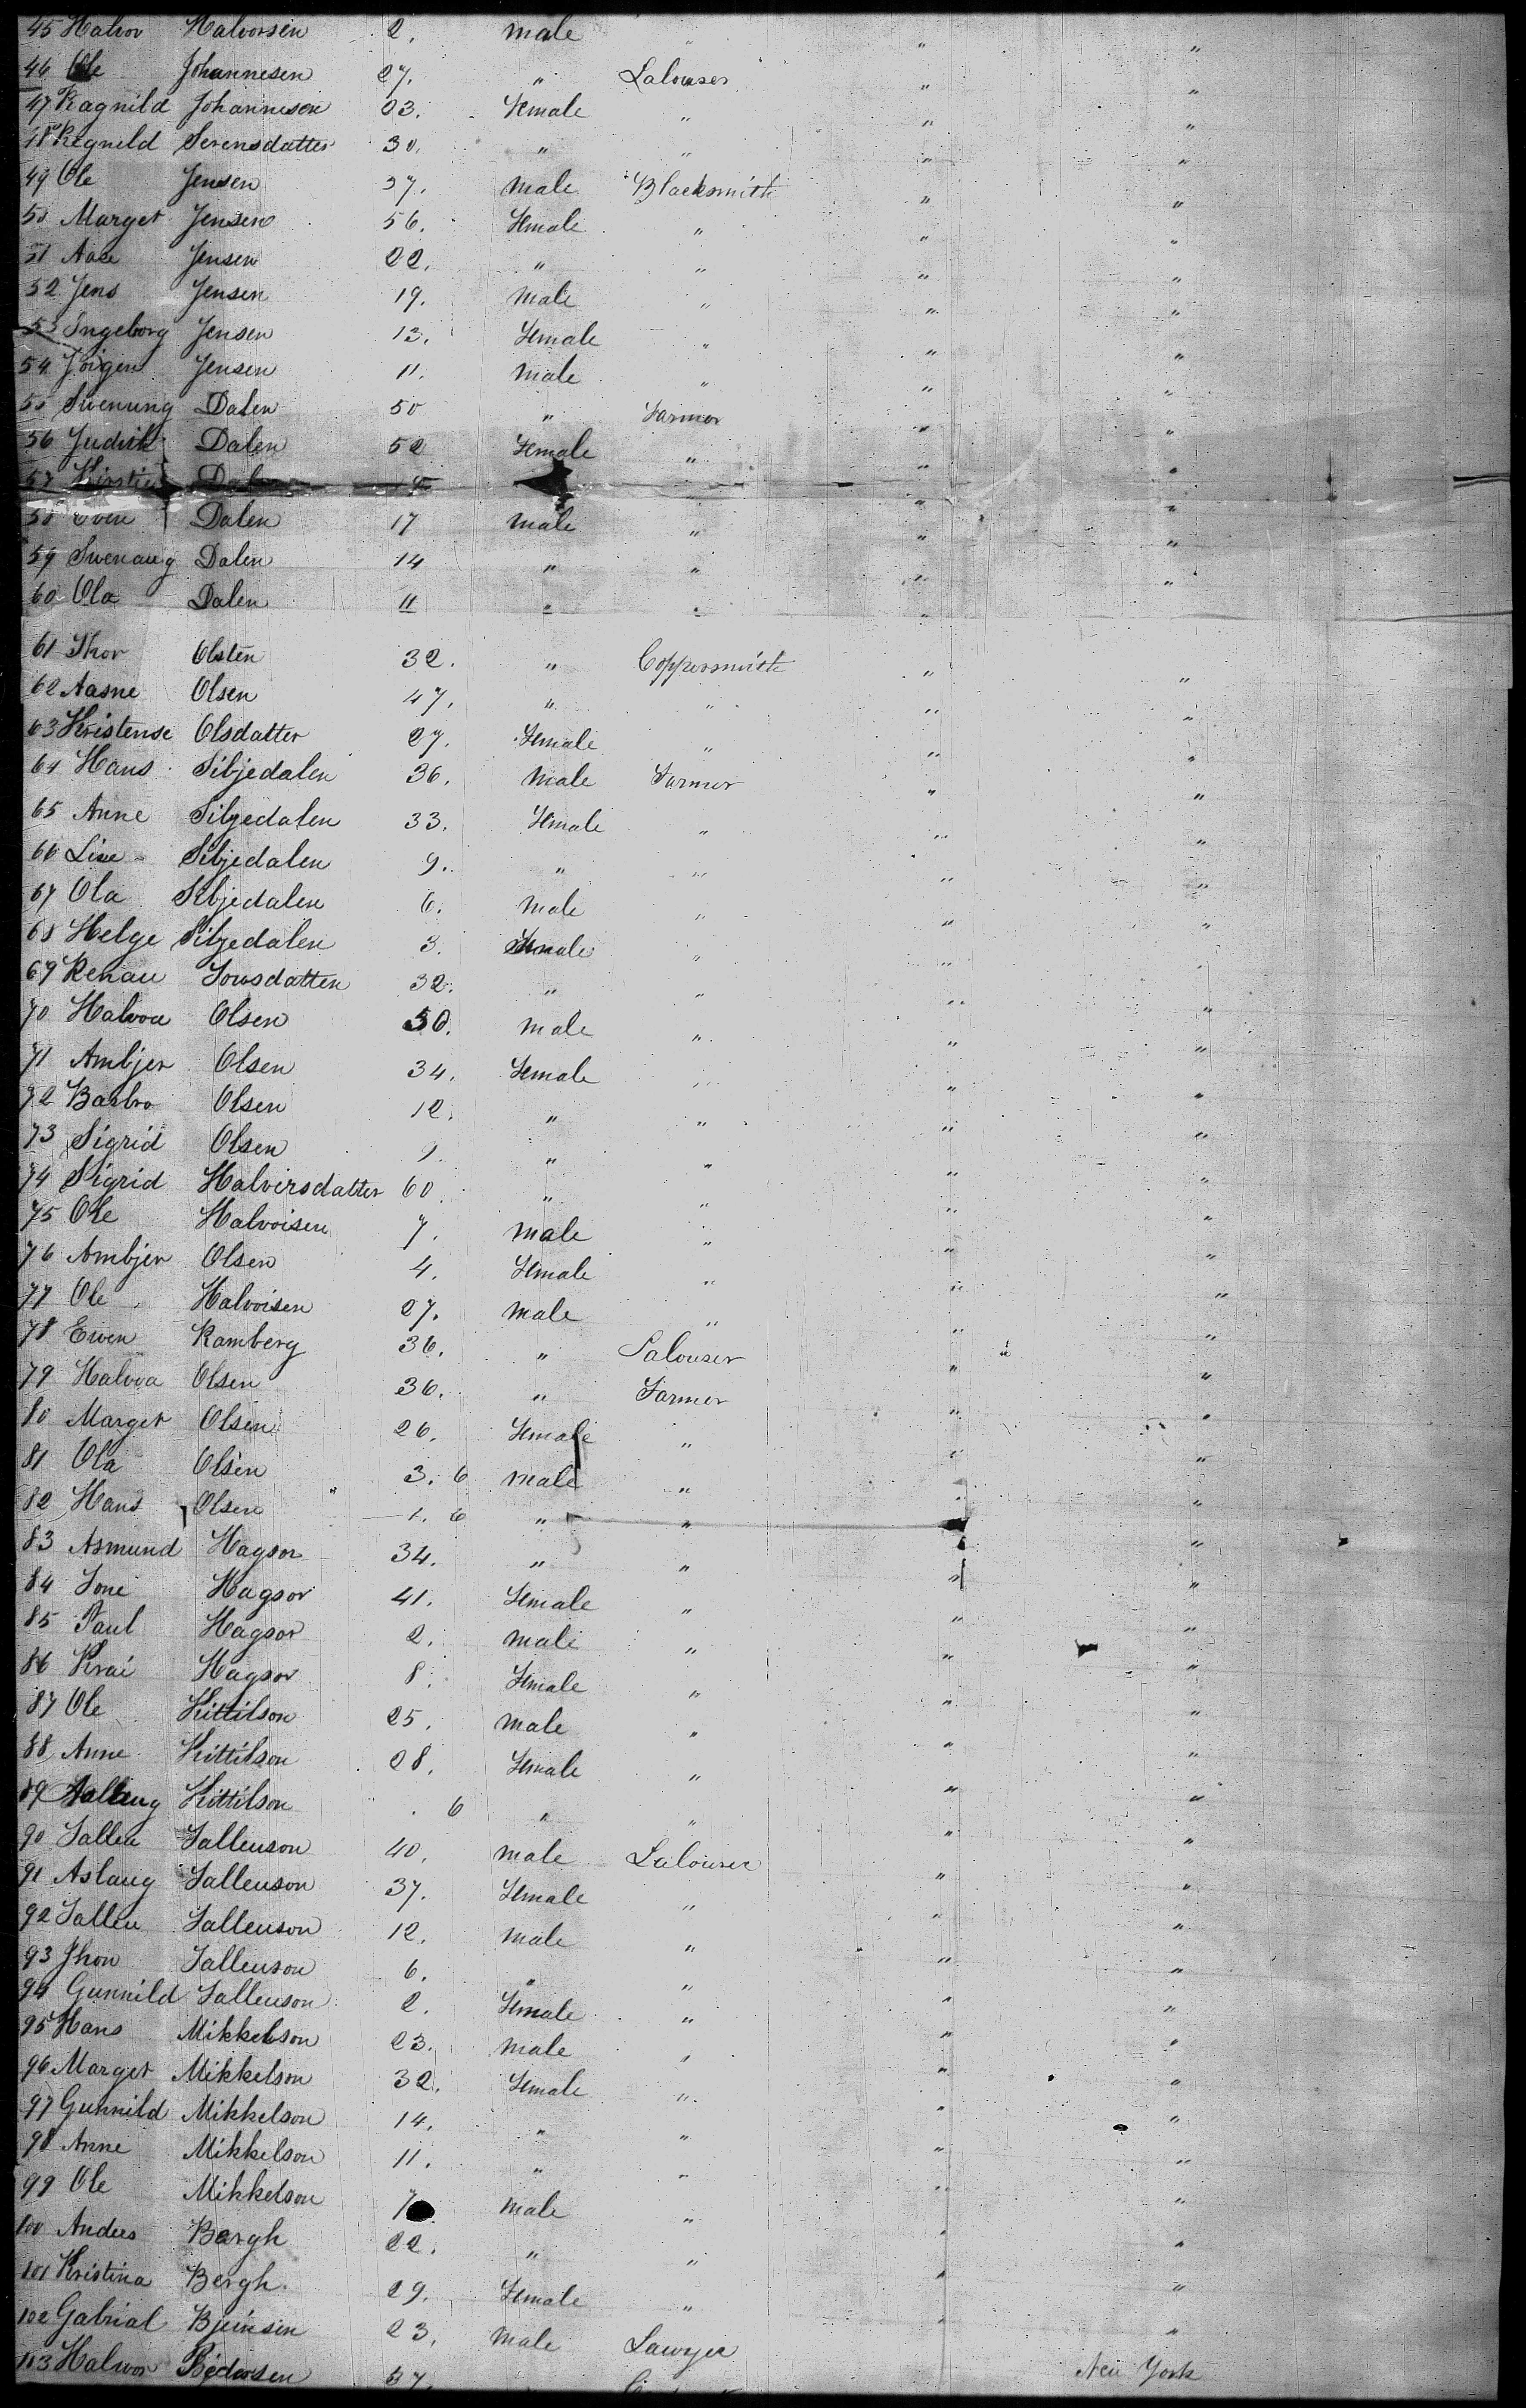 45 Halvor Halvorsen 2. male " "
46 Ole Johannesen 27. " Labouser " "
47 Ragnild Johannesen 23. Female " " "
48 Regneld Serensdatter 30. " " " "
49 Ole Jensen 37. male Blacksmith " "
50 Marget Jensen 56. Female " " "
51 Aase Jensen 22. " " " "
52 Jens Jensen 19. male " " "
53 Ingeborg Jensen 13. Female " " "
54 Jörgen Jensen 11. male " " "
55 Swenung Dalen 50 " Farmer " "
56 Judith Dalen 52 Female " " "
57 Kirstie Dalen " "
58 Even Dalen 17 male " " "
59 Swenaug Dalen 14 " " " "
60 Ola Dalen 11 " " "
61 Thor Olsten 32. " Coppersmith " "
62 Aasne Olsen 47. " " " "
63 Kristense Olsdatter 27. Female " " "
64 Hans Siljedalen 36. male Farmer " "
65 Anne Siljedalen 33. Female " " "
66 Live Siljedalen 9. " " " "
67 Ola Siljedalen 6. male " " "
68 Helge Siljedalen 3. Female " " "
69 Renau Jonsdatten 32. " " " "
70 Halvoa Olsen 50. male " " "
71 Ambjer Olsen 34. Female " " "
72 Barbro Olsen 12. " " " "
73 Sigrid Olsen 9. " " " "
74 Sigrid Halvorsdatter 60. " " " "
75 Ole Halvoisen 7. male " " "
76 Ambjer Olsen 4. Female " " "
77 Ole Halvoisen 27. male " " "
78 Ewen Ramberg 36. " Labouser " "
79 Halvoa Olsen 36. " Farmer " "
80 Marget Olsen 26. Female " " "
81 Ola Olsen 3. 6 male " " "
82 Hans Olsen 1. 6 " " " "
83 Asmund Hagsor 34. " " " "
84 Tone Hagsor 41. Female " " "
85 Paul Hagsor 2. male " " "
86 Krai Hagsor 8. Female " " "
87 Ole Kittilson 25. male " " "
88 Anne Kittilson 28. Female " " "
89 Kittilson . 6 " " " "
90 Tallen Tallenson 40. male Labouser " "
91 Aslaug Tallenson 37. Female " " "
92 Tallen Tallenson 12. male " " "
93 Jhon Tallenson 6. " " " "
94 Gunnild Tallenson 2. Female " " "
95 Hans Mikkelson 23. male " " "
96 Marget Mikkelson 32. Female " " "
97 Gunnild Mikkelson 14. " " " "
98 Anne Mikkelson 11. " " " "
99 Ole Mikkelson 7 male " " "
100 Andees Bergh 22. " " " "
101 Kristina Bergh. 29. Female " " "
102 Gabrial Bjeinsen 23. male Lawyer " "
103 Halvor Pedersen 57. New York